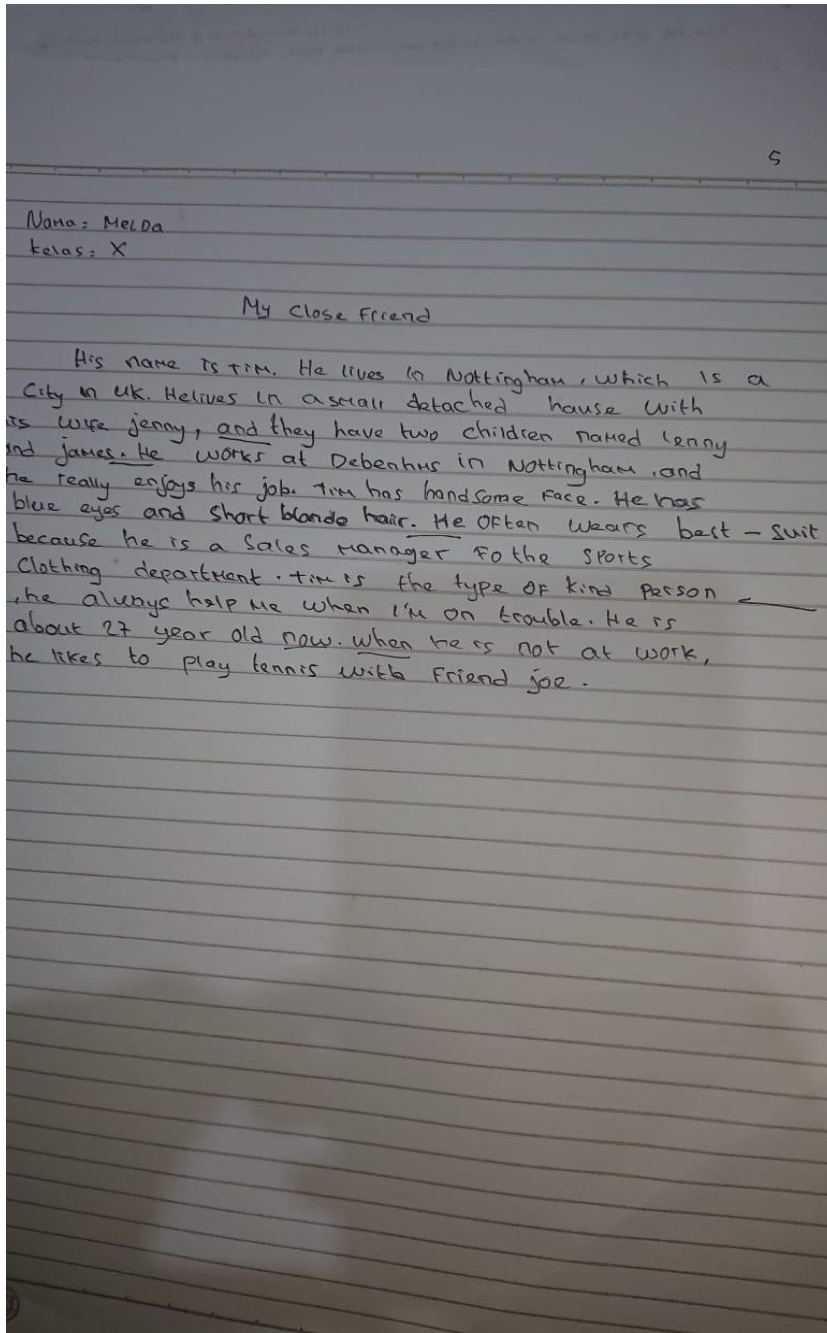 5
Nama: Melda
kelas: X
My Close Friend
His name is tim. He lives in Nottingham, which is a
City in UK. Helives in a small detached hause with
is wife jenny, and they have two children named lenny
and james. He works at Debenhms in Nottingham, and
he really enjoys his job. Tim has handsome face. He has
blue eyes and short blonde hair. He Often wears best - suit
because he is a Sales manager Fo the sports
Clothing department. tim is the type of kind person
, he always help me when I'm on trouble. He is
about 27 year old now. when he is not at work,
he likes to play tennis with Friend joe.